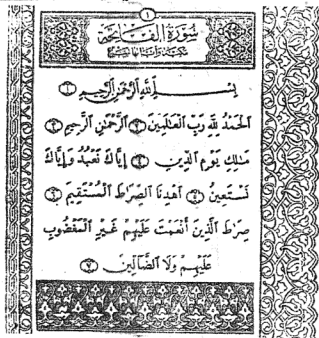 ١
سُورَةُ الفَاتِحَة
مكيّة وآياتها سبع
بِسْمِ اللَّهِ الرَّحْمَٰنِ الرَّحِيمِ ١
الْحَمْدُ لِلَّهِ رَبِّ الْعَالَمِينَ ٢ الرَّحْمَٰنِ الرَّحِيمِ ٣
مَالِكِ يَوْمِ الدِّينِ ٤ إِيَّاكَ نَعْبُدُ وَإِيَّاكَ
نَسْتَعِينُ ٥ اهْدِنَا الصِّرَاطَ الْمُسْتَقِيمَ ٦
صِرَاطَ الَّذِينَ أَنْعَمْتَ عَلَيْهِمْ غَيْرِ الْمَغْضُوبِ
عَلَيْهِمْ وَلَا الضَّالِّينَ ٧